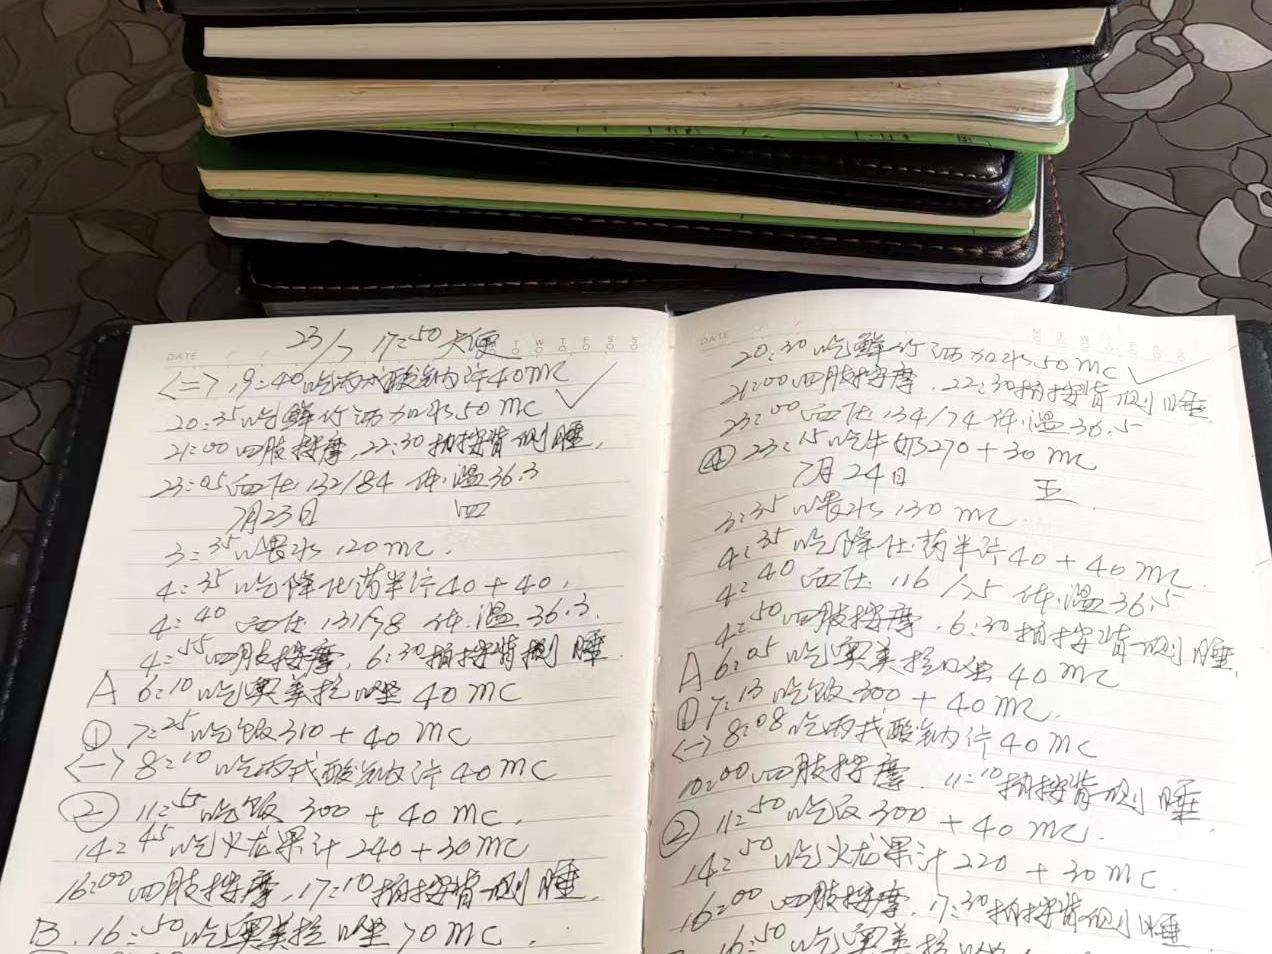 DATE
23/7 17=50 大便
T W T F S S
<二> 19=40吃丙戊酸钠片40mc
20=35吃鲜竹沥加水50mc ✓
21=00四肢按摩,22=30拍按背侧睡,
23=05血压132/84 体温36.3
7月23日 四
3=35喂水120mc.
4=35吃降压药半片40+40,
4=40 血压131/98 体温36.3.
4=55四肢按摩,6=30拍按背侧睡.
A 6=10吃奥美拉唑40mc
① 7=25吃饭310+40mc
<一> 8=10吃丙戊酸钠片40mc
② 11=55吃饭300+40mc.
14=45吃火龙果汁240+30mc
16=00四肢按摩,17=10拍按背侧睡.
B.16=50吃奥美拉唑70mc.
DATE
M T W
20=30吃鲜竹沥加水50mc ✓
21=00四肢按摩.22=30拍按背侧睡
23=00血压134/74体温36.5
④ 23=15吃牛奶270+30mc
7月24日 五
3=35喂水130mc.
4=35吃降压药半片40+40mc.
4=40 血压116/75体温36.5
4=50四肢按摩,6=30拍按背侧睡,
A 6=05吃奥美拉唑40mc
① 7=13吃饭300+40mc.
<一> 8=08吃丙戊酸钠片40mc
10=00四肢按摩.11=10拍按背侧睡.
② 11=50吃饭300+40mc.
14=50吃火龙果汁220+30mc.
16=00四肢按摩.17=30拍按背侧睡
16=50吃奥美拉唑